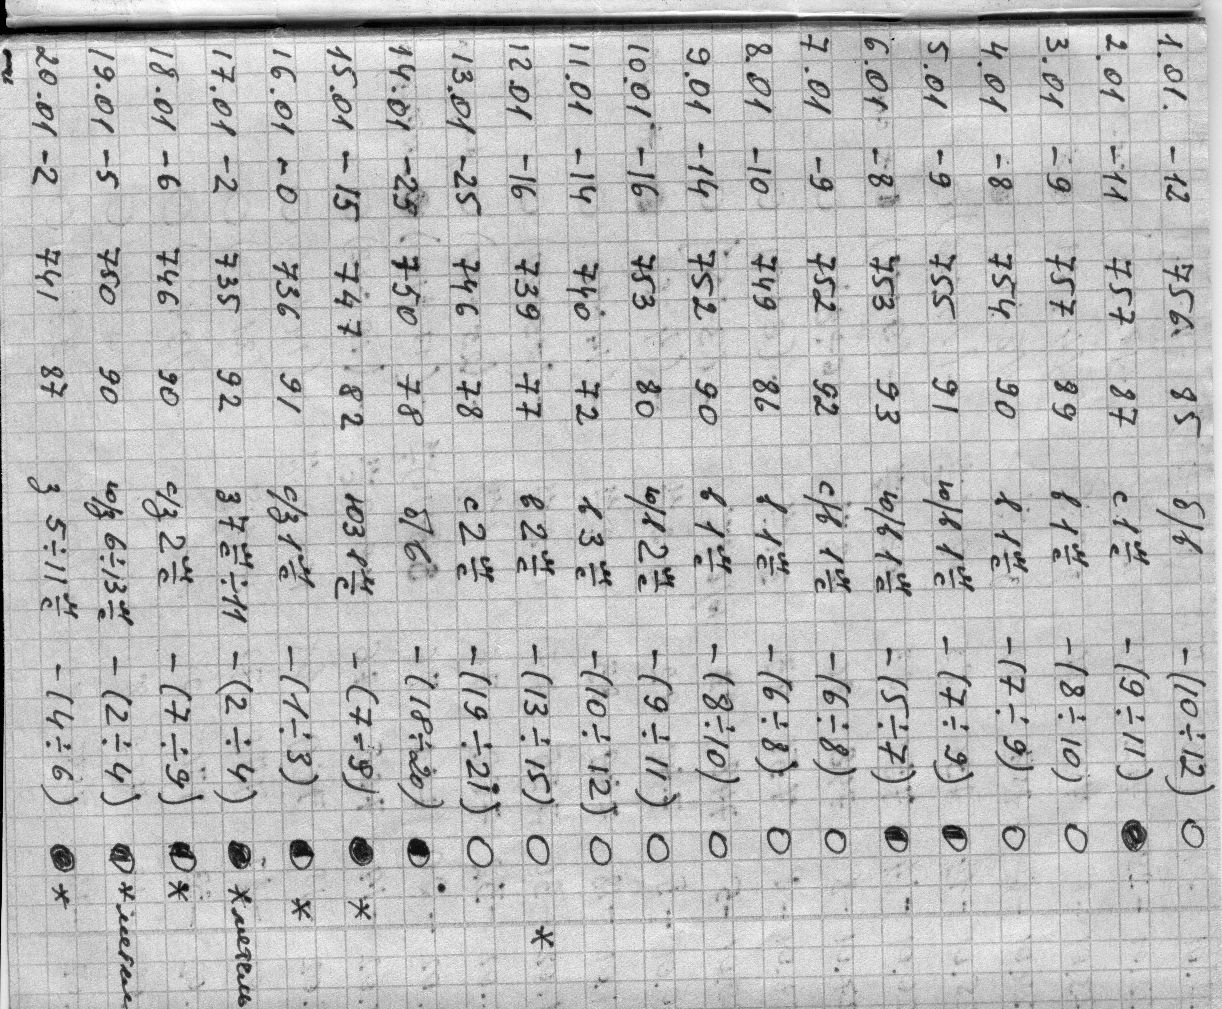 1.01. -12 756 85 б/в -(10÷12) ○
2.01 -11 757 87 с 1 м/с -(9÷11) ●
3.01 -9 757 89 в 1 м/с -(8÷10) ○
4.01 -8 754 90 в 1 м/с -(7÷9) ○
5.01 -9 755 91 ю/в 1 м/с -(7÷9) ◐
6.01 -8 753 93 ю/в 1 м/с -(5÷7) ◐
7.01 -9 752 92 с/в 1 м/с -(6÷8) ○
8.01 -10 749 86 в 1 м/с -(6÷8) ○
9.01 -14 752 90 в 1 м/с -(8÷10) ○
10.01 -16 753 80 ю/в 2 м/с -(9÷11) ○
11.01 -14 740 72 в 3 м/с -(10÷12) ○
12.01 -16 739 77 в 2 м/с -(13÷15) ○ *
13.01 -25 746 78 с 2 м/с -(19÷21) ○
14.01 -25 750 78 б/в -(18÷20) ◐
15.01 -15 747 82 юз 1 м/с -(7÷9) ● *
16.01 -0 736 91 с/з 1 м/с -(1÷3) ◐ *
17.01 -2 735 92 з 7 м/с ÷11 -(2÷4) ● * метель
18.01 -6 746 90 с/з 2 м/с -(7÷9) ◐ *
19.01 -5 750 90 ю/з 6÷13 м/с -(2÷4) ◐ * метель
20.01 -2 741 87 з 5÷11 м/с -(4÷6) ● *